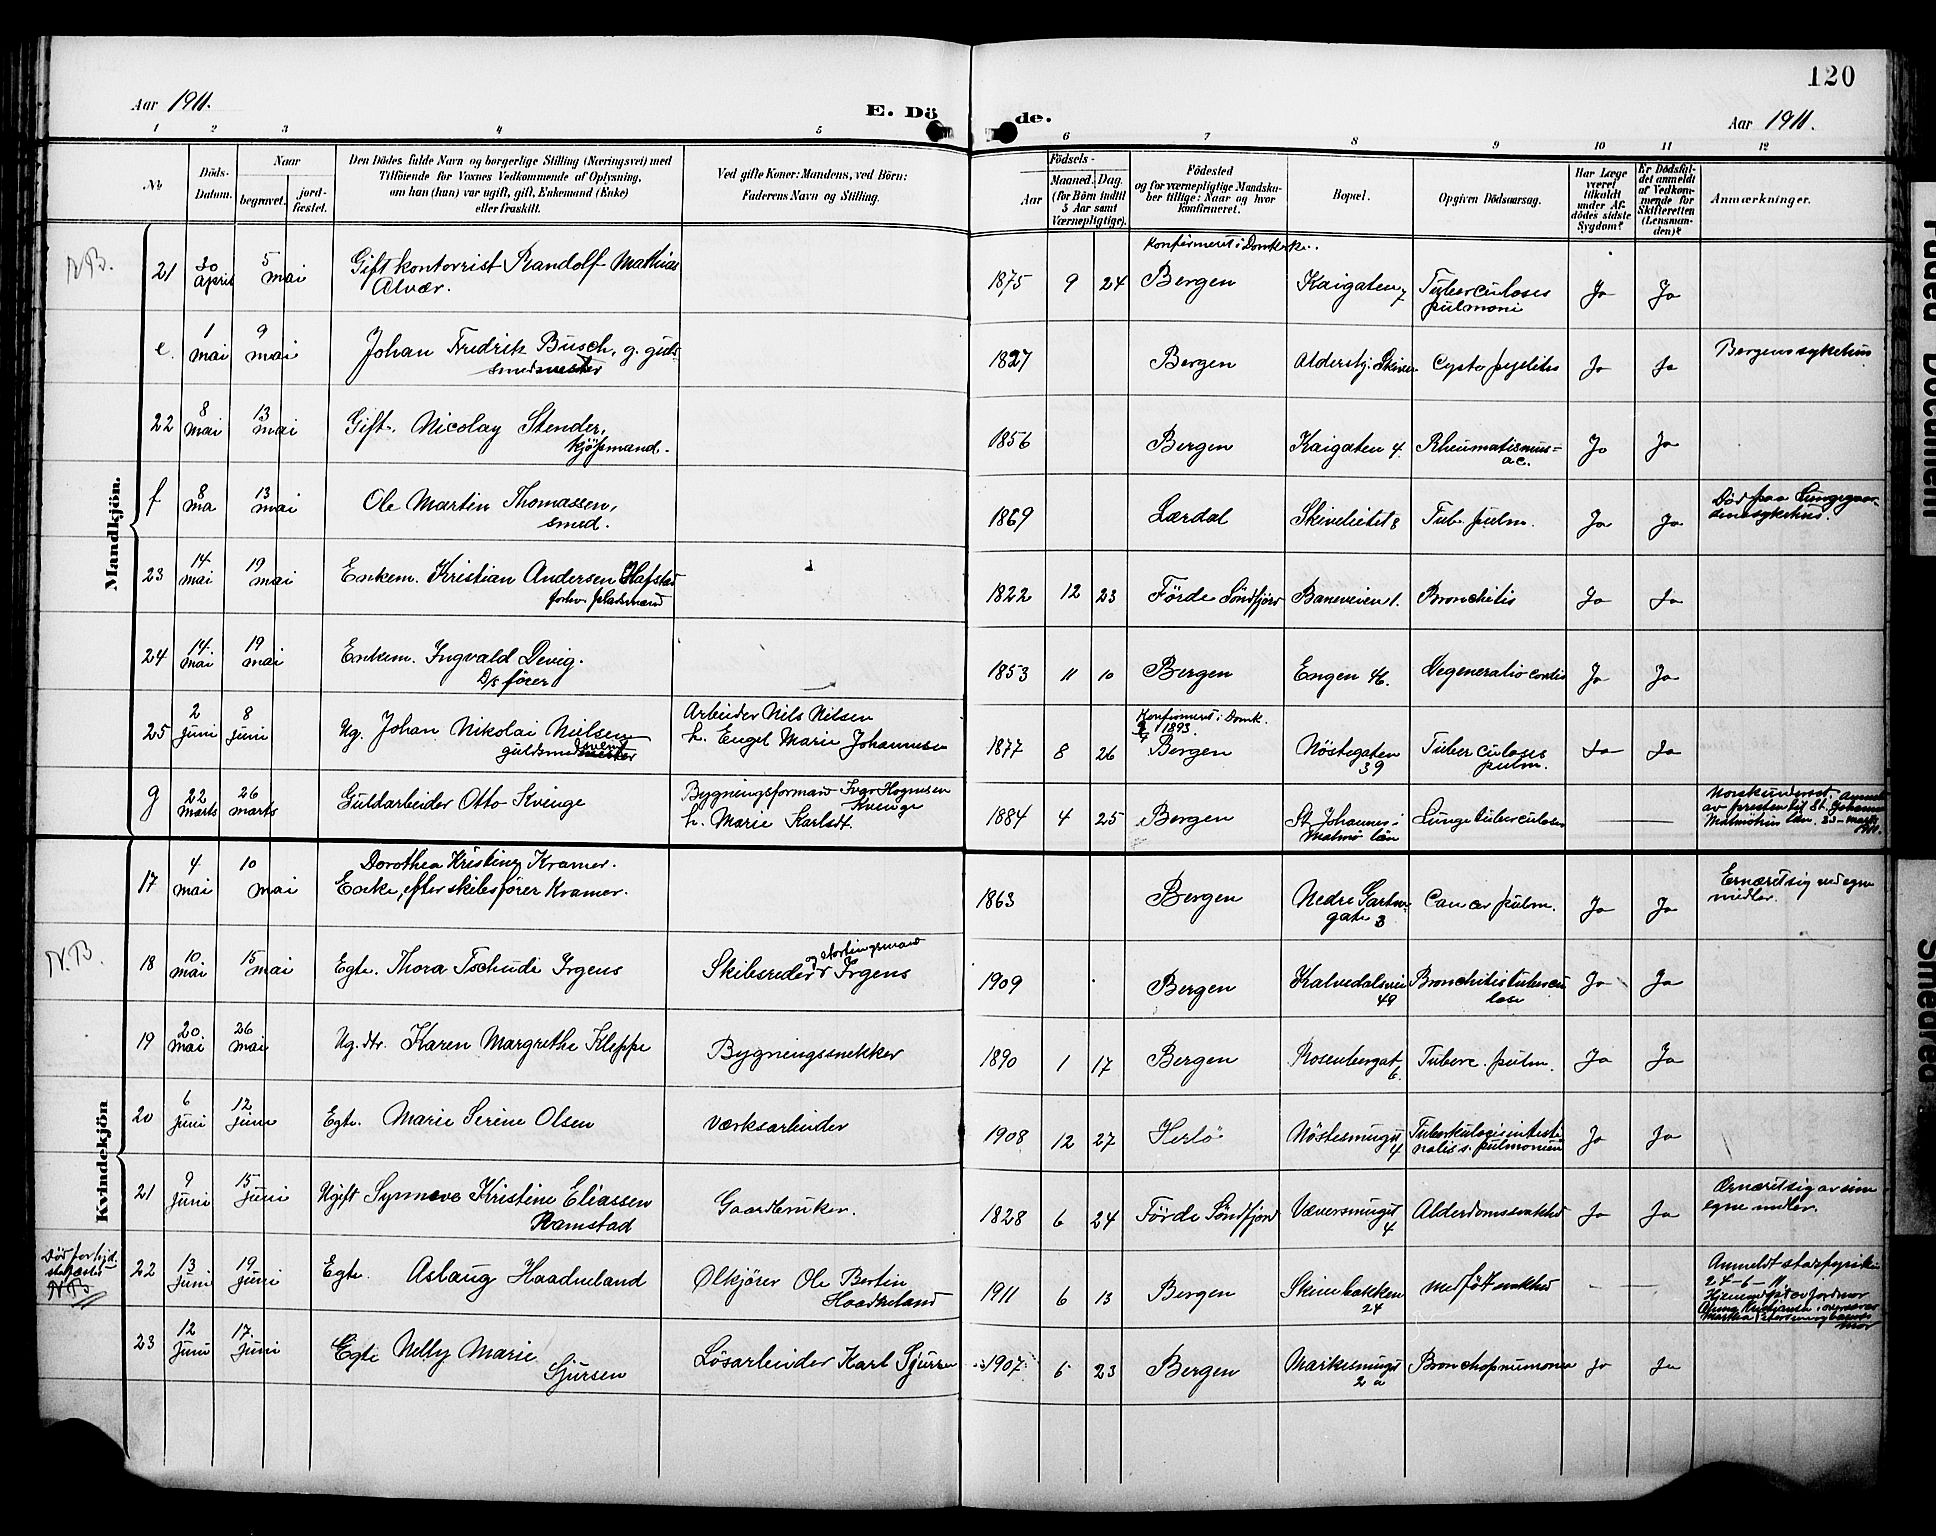 120
Aar 1911.
E. Dö
de.
Aar 1911.
1 2 3 4 5 6 7 8 9 10 11 12
No
Döds-
Datum.
Naar
begravet.
jord-
fæstet.
Den Dödes fulde Navn og borgerlige Stilling (Næringsvei) med
Tilföiende for Voxnes Vedkommende af Oplysning,
om han (hun) var ugift, gift, Enkemand (Enke)
eller fraskilt.
Ved gifte Koner: Mandens, ved Börn:
Faderens Navn og Stilling.
Födsels-
Aar
Maaned. Dag.
(for Börn indtil
5 Aar samt
Værnepligtige).
Födested
og for værnepligtige Mandska-
ber tillige: Naar og hvor
konfirmeret.
Bopæl.
Opgiven Dödsaarsag.
Har Læge
været
tilkaldt
under Af-
dödes sidste
Sygdom?
Er Dödsfal-
det anmeldt
af Vedkom-
mende for
Skifteretten
(Lensman-
den)?
Anmærkninger.
Mandkjön.
N.B.
21 30 april 5 mai Gift kontorrist Randolf Mathias
Alvær.
1875 9 24 Konfirmeret i Domkirke.
Bergen Kaigaten 7 Tuberculoses
pulmoni Ja Ja
e. 1 mai 9 mai Johan Fredrik Busch, g. guld-
smedmester
1827 Bergen Aldershj. Skiven Cysto pyelitis Ja Ja Bergens sykehus
22 8 mai 13 mai Gift. Nicolay Stender,
kjöpmand.
1856 Bergen Kaigaten 4. Rheumatismus=
ac. Ja Ja
f 8 ma 13 mai Ole Martin Thomassen,
smed.
1869 Lærdal Skiveliet 8 Tub. pulm. Ja Ja Död paa Lungegaar-
dens sykehus.
23 14 mai 19 mai Enkem. Kristian Andersen Hafstad
forhv. pladsmand
1822 12 23 Förde Söndfjord Baneveien 1. Bronchitis Ja Ja
24 14. mai 19 mai Enkem. Ingvald Devig.
D/s förer
1853 11 10 Bergen Engen 46. Degeneratio cordis Ja Ja
25 2 juni 8 juni Ug. Johan Nikolai Nielsen
guldsmedsvend
Arbeider Nils Nilsen
h. Engel Marie Johannesen
1877 8 26 Konfirmeret i Domk.
1893.
Bergen Nöstegaten
39 Tuberculoses
pulm. Ja Ja
g 22 marts 26 marts Guldarbeider Otto Kvinge
Bygningsformand Ivar Hognesen
Kvinge
h. Marie Karlsdt.
1884 4 25 Bergen St. Johannes i
Malmö län Lungetuberculose — — Norsk undersaat. Anmeldt
av presten til St. Johannes
Malmöhus län. 23 - marts
1911.
Kvindekjön
17 4 mai 10 mai Dorothea Kristine Kramer.
Enke efter skibsförer Kramer.
1863 Bergen Nedre Gartner
gate 3 Cancer pulm. Ja Ja Ernæret sig ved egne
midler.
N.B.
18 10 mai 15 mai Egte. Thora Tschudi Irgens
Skibsreder og stortingsmand Irgens
1909 Bergen Kalvedalsvei
49 Bronchitis tubercu
lose Ja Ja
19 20 mai 26 mai Ug. dtr. Karen Margrethe Kleppe
Bygningssnekker
1890 1 17 Bergen Rosenbergat
6. Tuberc. pulm. Ja Ja
20 6 juni 12 juni Egte. Marie Serine Olsen
Værksarbeider
1908 12 27 Herlö Nöstesmuget
4 Tuberkulosis intesti
nalis s. pulmonum Ja Ja
21 9 juni 15 juni Ugift Synneve Kristine Eliassen
Ramstad
Gaardbruker.
1828 6 24 Förde Söndfjord Væversmuget
4 Alderdomssvakhed Ja Ja Ernæret sig av sine
egne midler.
Död för hjd.
N.B
22 13 juni 19 juni Egte. Aslaug Haadneland
Ölkjörer Ole Bertin
Haadneland
1911 6 13 Bergen Skivebakken
24 medfödt svakhed — — Anmeldt stadsfysikus
24-6-11
Hjemmedöpt av jordmor
23 12 juni 17. juni Egte Nelly Marie
Sjursen
Lösarbeider Karl Sjursen
1907 6 23 Bergen Markesmuget
2 a Bronchopnumonia Ja Ja